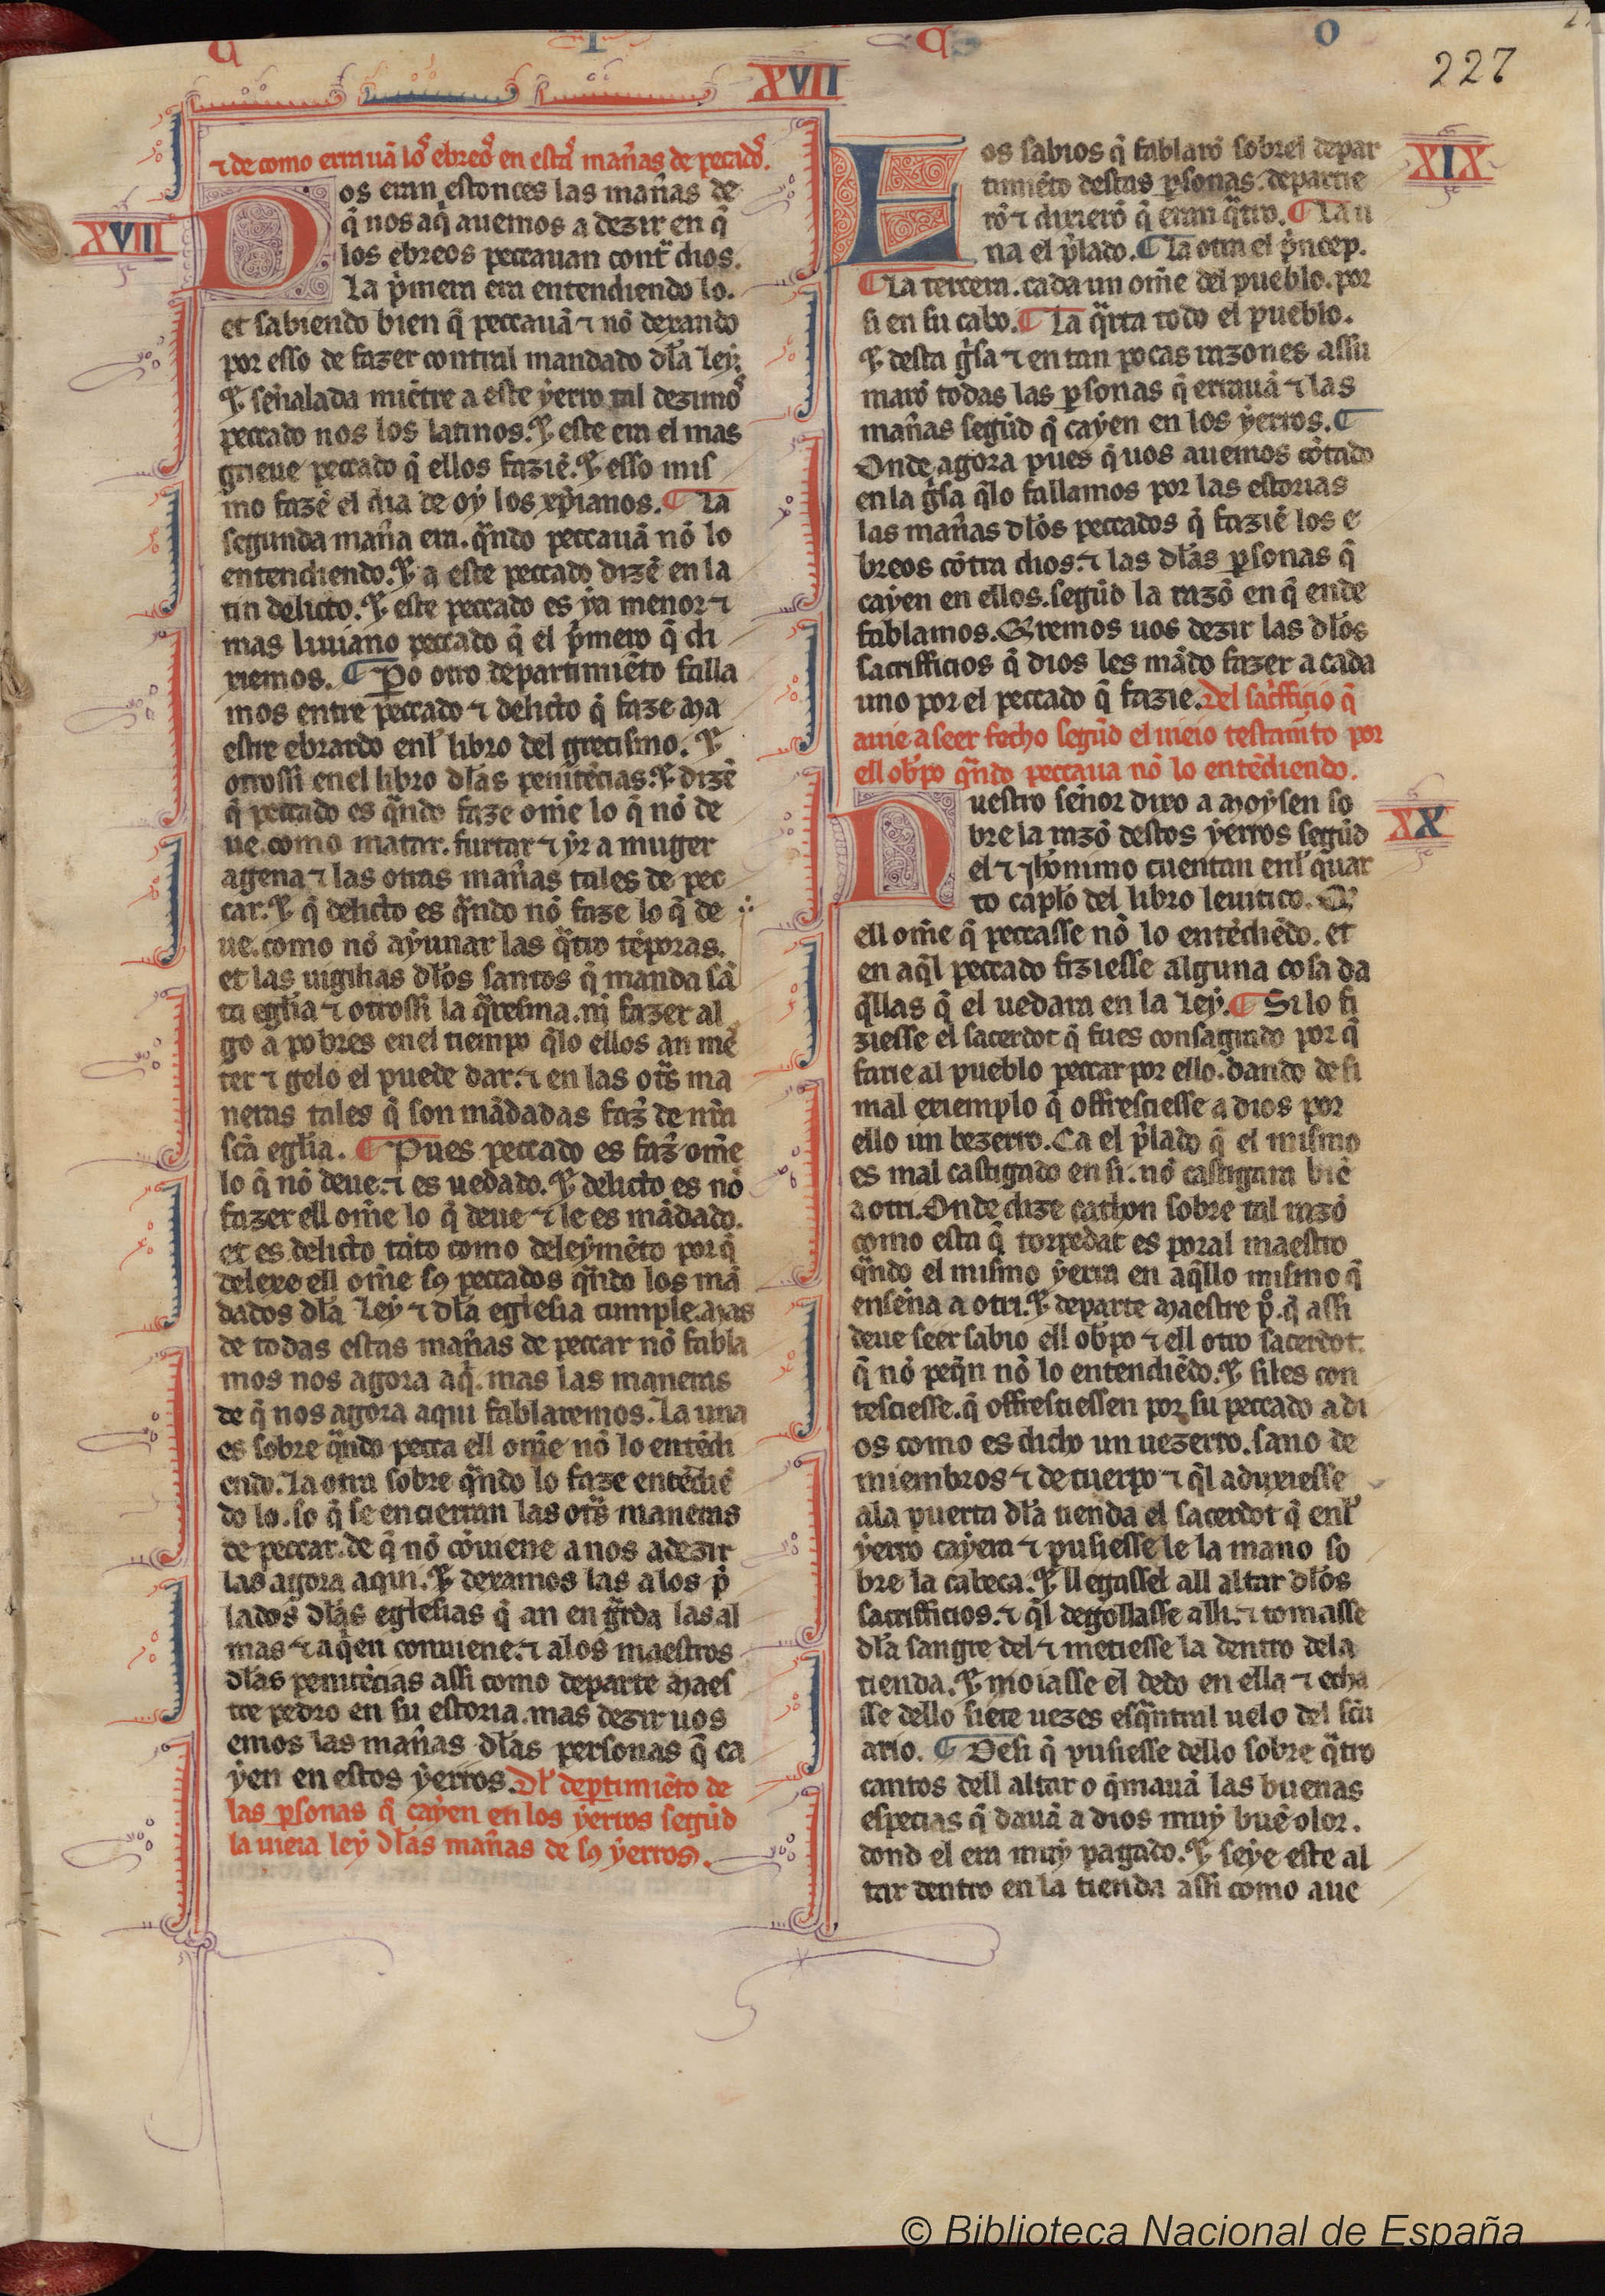 XVII
227
⁊ de como errauã los̃ ebreos̃ en estas̃ mañas de pecados̃.
XVIII
Dos eran estonces las mañas de
q̃ nos aq̃ auemos a dezir en q̃
los ebreos peccauan contra dios.
La p̃mera era entendiendo lo.
et sabiendo bien q̃ peccauã ⁊ nõ dexando
por esso de fazer contral mandado dła ley.
⁊ señalada miẽtre a este yerro tal dezimos̃
peccado nos los latinos. ⁊ este era el mas
grieue peccado q̃ ellos faziẽ. ⁊ esso mis
mo fazẽ el dia de oy los xp̃ianos. ¶ La
segunda mañа era. q̃ndo peccauã nõ lo
entendiendo. ⁊ a este peccado dizẽ en la
tin delicto. ⁊ este peccado es ya menor ⁊
mas liuiano peccado q̃ el p̃mero q̃ di
xiemos. ¶ Pero otro departimiẽto falla
mos entre peccado ⁊ delicto q̃ faze Ma
estre ebrardo enł libro del grecismo. ⁊
otrossi en el libro dłas penitẽcias. ⁊ dizẽ
q̃ peccado es q̃ndo faze om̃e lo q̃ nõ de
ue. como matar. furtar ⁊ yr a muger
agena ⁊ las otras mañas tales de pec
car. ⁊ q̃ delicto es q̃ndo nõ faze lo q̃ de
ue. como nõ ayunar las q̃tro tẽporas.
et las uigilias dłos santos q̃ manda sã
ta egłia ⁊ otrossi la q̃resma. nj̃ fazer al
go a pobres en el tiempo q̃lo ellos an me
ter ⁊ gelo el puede dar. ⁊ en las otr̃s ma
neras tales q̃ son mãdadas faz̃ de nr̃a
scã egłia. ¶ Pues peccado es faz̃ om̃e
lo q̃ nõ deue. ⁊ es uedado. ⁊ delicto es nõ
fazer ell om̃e lo q̃ deue ⁊ le es mãdado.
et es delicto tãto como deleymẽto porq̃
delexe ell om̃e sꝯ peccados q̃ndo los mã
dados dła Ley ⁊ dła eglesia cumple. Mas
de todas estas mañas de peccar nõ fabla
mos nos agora aq̃. mas las maneras
de q̃ nos agora aqui fablaremos. La una
es sobre q̃ndo pecca ell om̃e nõ lo entẽdi
endo. La otra sobre q̃ndo lo faze entẽdiẽ
do lo. so q̃ se encierran las otr̃s maneras
de peccar. de q̃ nõ cõuiene a nos a dezir
las agora aqui. ⁊ dexamos las a los p̃
lados dłas eglesias q̃ an en g̃rda las al
mas ⁊ aq̃en conuiene. ⁊ alos maestros
dłas penitẽcias assi como departe Maes
tre pedro en su estoria. mas dezir uos
emos las mañas dłas personas q̃ ca
yen en estos yerros. Dł dep̲timiẽto de
las p̲sonas q̃ cayen en los yerros segũd
la uieia ley dłas mañas de sꝯ yerros.
XIX
Los sabios q̃ fablarõ sobrel depar
timiẽto destas p̲sonas. departie
rõ ⁊ dixierõ q̃ eran q̃tro. ¶ La u
na el p̃lado. ¶ La otra el p̃ncep.
¶ La tercera. cada un om̃e del pueblo. por
si en su cabo. ¶ La q̃rta todo el pueblo.
⁊ desta g̃sa ⁊ en tan pocas razones assu
marõ todas las p̲sonas q̃ errauã ⁊ las
mañas segũd q̃ cayen en los yerros. ¶
Onde agora pues q̃ uos auemos cõtado
en la g̃sa q̃lo fallamos por las estorias
las mañas dłos peccados q̃ faziẽ los e
breos cõtra dios. ⁊ las dłas p̲sonas q̃
cayen en ellos. segũd la razõ en q̃ ende
fablamos. Q̃remos uos dezir las dłos
sacrifficios q̃ dios les mãdo fazer a cada
uno por el peccado q̃ fazie. Del sac̃fficio q̃
auie a seer fecho segũd el uieio testamẽto por
ell ob̃po q̃ndo peccaua nõ lo entẽdiendo.
XX
Nuestro señor dixo a Moysen so
bre la razõ destos yerros segũd
el ⁊ Jheronimo cuentan enł quar
to capłο del libro leuitico. Q̃
ell om̃e q̃ peccasse nõ lo entẽdiẽdo. et
en aq̃l peccado fiziesse alguna cosa da
q̃llas q̃ el uedara en la Ley. ¶ Si lo fi
ziesse el sacerdot q̃ fues consagrado por q̃
farie al pueblo peccar por ello. dando de si
mal exiemplo q̃ offresciesse a dios por
ello un bezerro. Ca el p̃lado q̃ el mismo
es mal castigado en si. nõ castigara biẽ
a otri. Onde dize cathon sobre tal razõ
como esta q̃ torpedat es poral maestro
q̃ndo el mismo yerra en aq̃llo mismo q̃
enseña a otri. ⁊ departe Maestre p̃o. q̃ assi
deue seer sabio ell ob̃po ⁊ ell otro sacerdot.
q̃ nõ peq̃n nõ lo entendiẽdo. ⁊ siles con
tesciesse. q̃ offresciessen por su peccado a di
os como es dicho un uezerro. sano de
miembros ⁊ de cuerpo ⁊ q̃l aduxiesse
ala puerta dła tienda el sacerdot q̃ enł
yerro cayera ⁊ pusiesse le la mano so
bre la cabeca. ⁊ llegassel all altar dłos
sacrifficios. ⁊ q̃l degollasse alli. ⁊ tomasse
dła sangre del ⁊ metiesse la dentro dela
tienda. ⁊ moiasse el dedo en ella ⁊ echa
sse dello siete uezes esq̃ntral uelo del scũ
ario. ¶ Desi q̃ pusiesse dello sobre q̃tro
cantos dell altar o q̃mauã las buenas
especias q̃ dauã a dios muy buẽ olor.
dond el era muy pagado. ⁊ seye este al
tar dentro en la tienda assi como aue
© Biblioteca Nacional de España